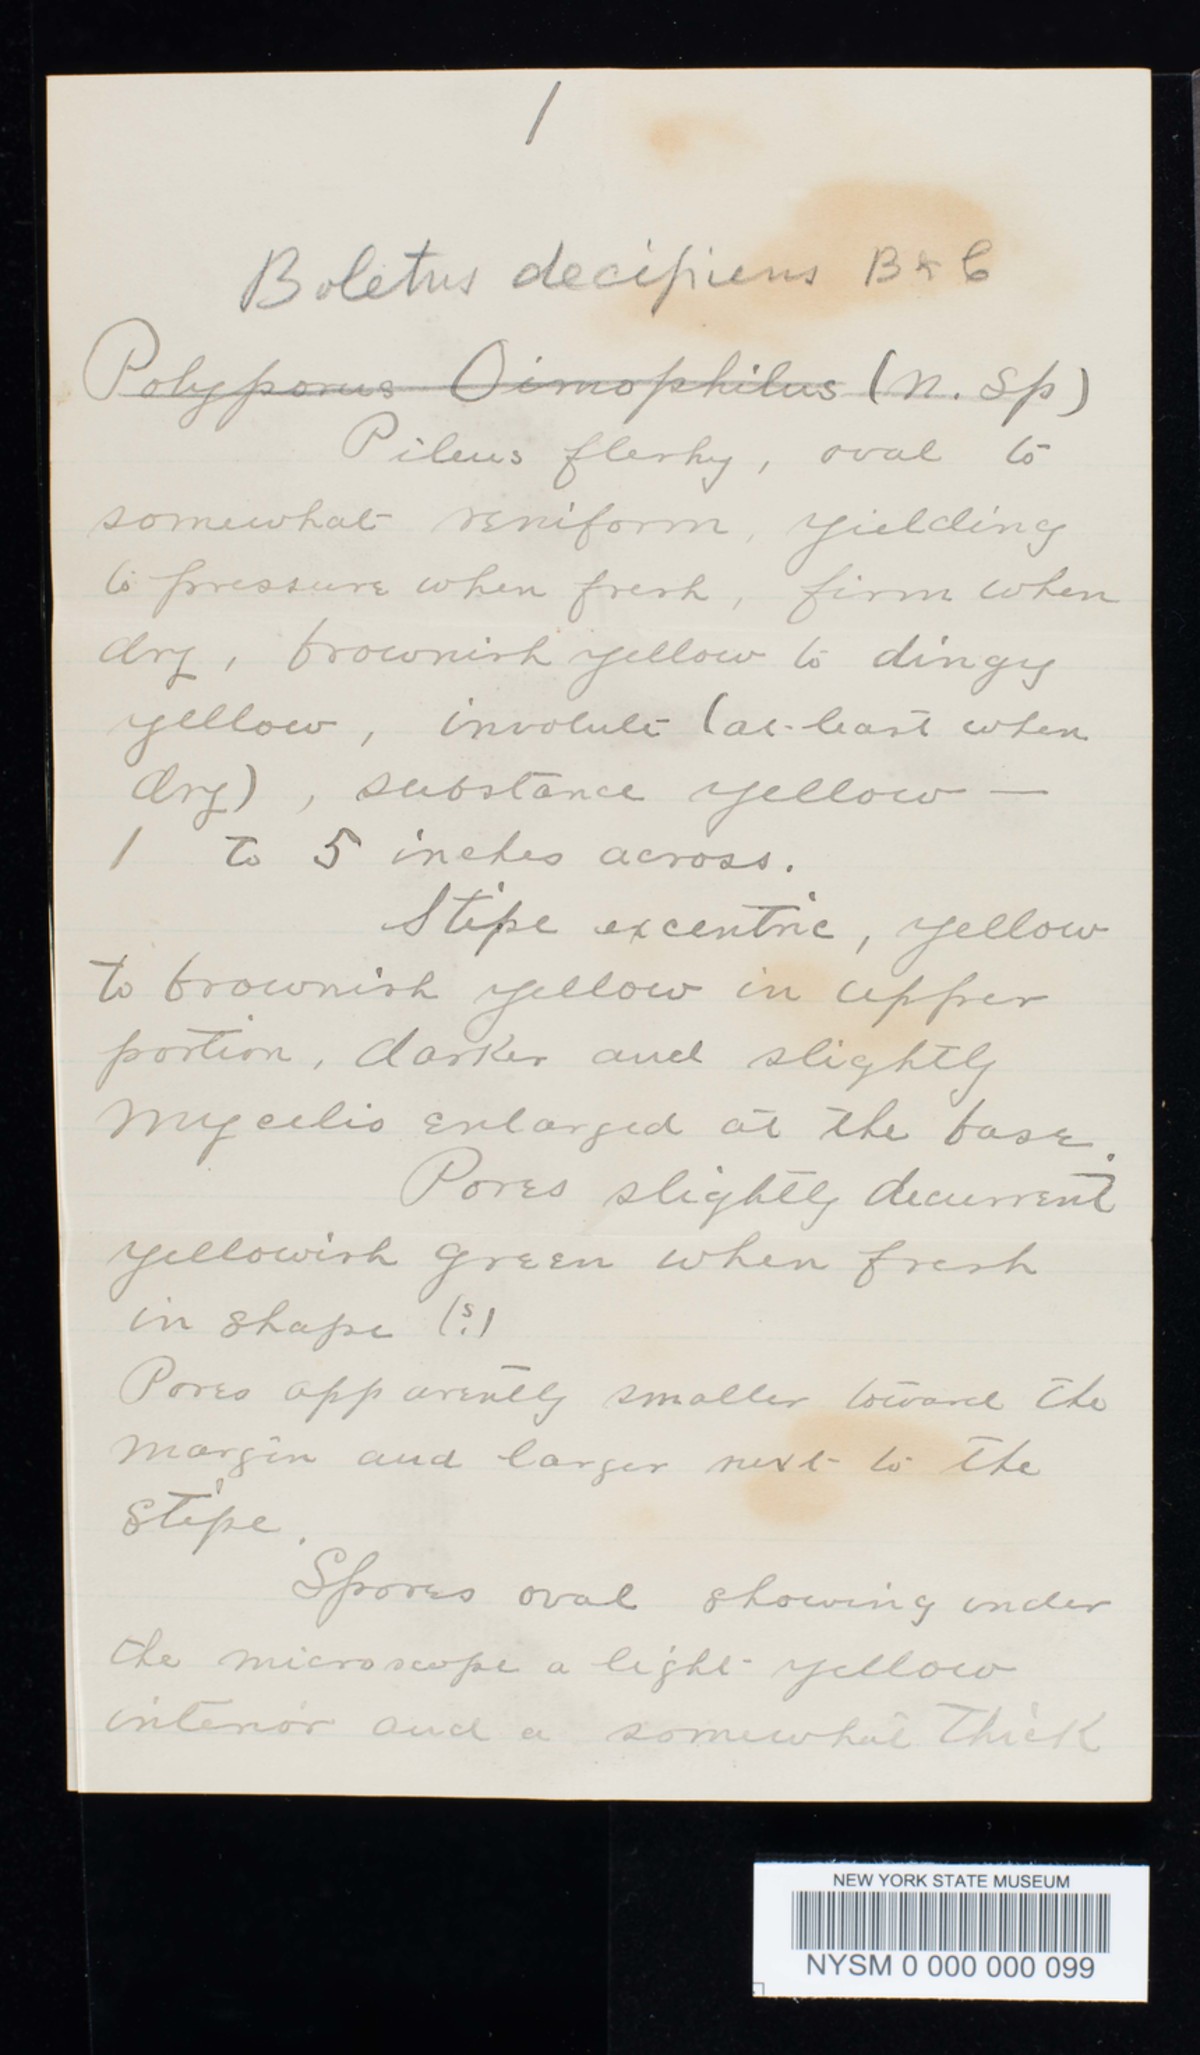 1
Boletus decipiens B & C
Polyporus Oimophilus (n. sp)
Pileus fleshy, oval to
somewhat reniform, yielding
to pressure when fresh, firm when
dry, brownish yellow to dingy
yellow, involute (at least when
dry), substance yellow —
1 to 5 inches across.
Stipe excentric, yellow
to brownish yellow in upper
portion, darker and slightly
mycelio enlarged at the base.
Pores slightly decurrent
yellowish green when fresh
in shape (?)
Pores apparently smaller toward the
margin and larger next to the
stipe.
Spores oval showing under
the microscope a light yellow
interior and a somewhat thick
NEW YORK STATE MUSEUM
NYSM 0 000 000 099